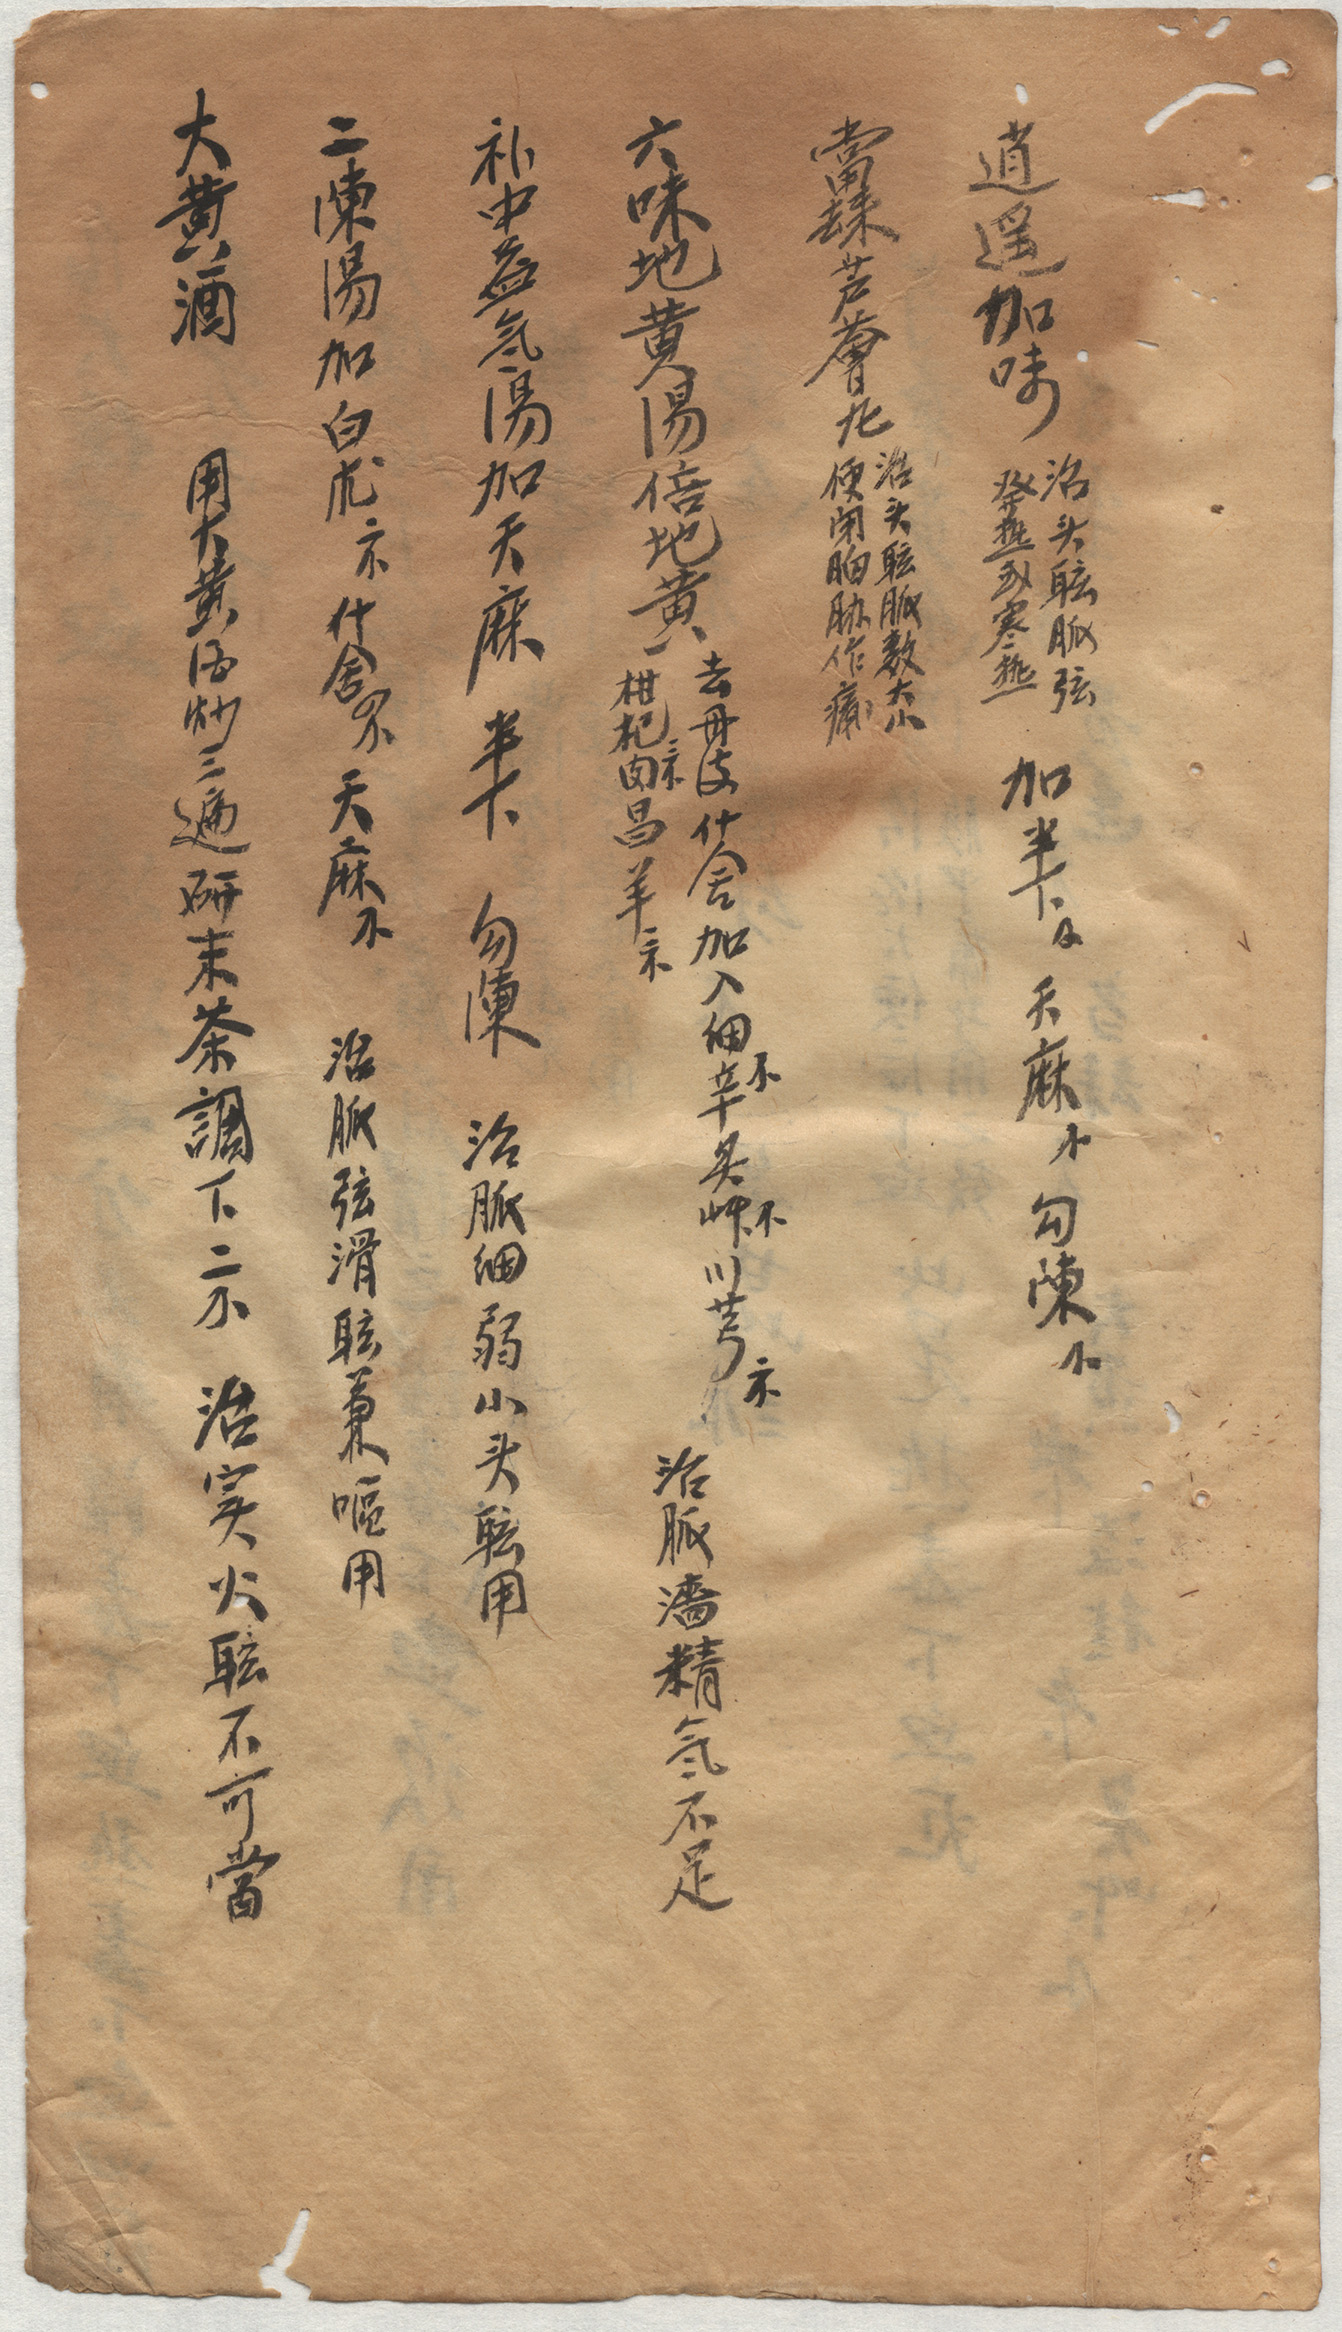 逍遥加味 治头眩脈弦 發热或寒热 加半下 天麻 勾陳
當 芦薈 治头眩脈数大小 便闭胸胁作痛
六味地黄湯倍地黄 去丹皮什舍加入細辛 川芎 枸杞 肉 羊 治脈濇精氣不足
补中益氣湯加天麻 半下 勾陳 治脈細弱小头眩用
二陳湯加白 什舍 天麻 治脈弦滑眩兼嘔用
大黄酒 用大黄酒炒三遍研末茶調下二 治实火眩不可當